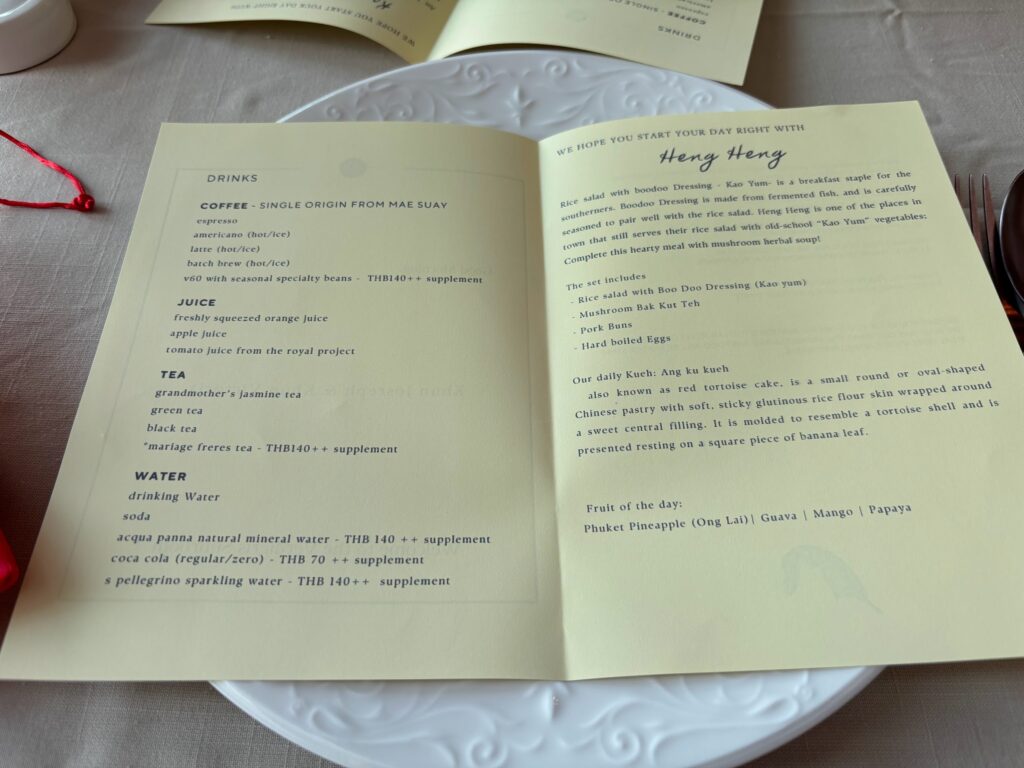 WE HOPE YOU START YOUR DAY RIGHT WITH
COFFEE - SINGLE
DRINKS
DRINKS
COFFEE - SINGLE ORIGIN FROM MAE SUAY
espresso
americano (hot/ice)
latte (hot/ice)
batch brew (hot/ice)
v60 with seasonal specialty beans - THB140++ supplement
JUICE
freshly squeezed orange juice
apple juice
tomato juice from the royal project
TEA
grandmother's jasmine tea
green tea
black tea
*mariage freres tea - THB140++ supplement
WATER
drinking Water
soda
acqua panna natural mineral water - THB 140 ++ supplement
coca cola (regular/zero) - THB 70 ++ supplement
s pellegrino sparkling water - THB 140++ supplement
WE HOPE YOU START YOUR DAY RIGHT WITH
Heng Heng
Rice salad with boodoo Dressing - Kao Yum- is a breakfast staple for the
southerners. Boodoo Dressing is made from fermented fish, and is carefully
seasoned to pair well with the rice salad. Heng Heng is one of the places in
town that still serves their rice salad with old-school "Kao Yum" vegetables;
Complete this hearty meal with mushroom herbal soup!
The set includes
- Rice salad with Boo Doo Dressing (Kao yum)
- Mushroom Bak Kut Teh
- Pork Buns
- Hard boiled Eggs
Our daily Kueh: Ang ku kueh
also known as red tortoise cake, is a small round or oval-shaped
Chinese pastry with soft, sticky glutinous rice flour skin wrapped around
a sweet central filling. It is molded to resemble a tortoise shell and is
presented resting on a square piece of banana leaf.
Fruit of the day:
Phuket Pineapple (Ong Lai)| Guava | Mango | Papaya